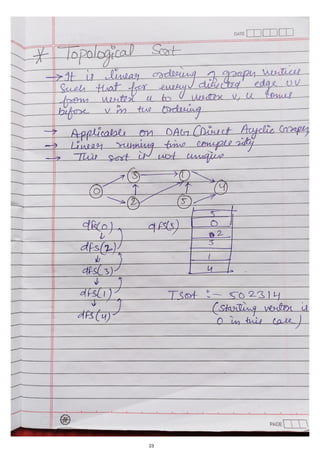 DATE
* Topological Sort
→ It is linear ordering of graph vertices
such that for every directed edge uv
from vertex u to vertex v, u comes
before v in the ordering
→ Applicable on DAG (Direct Acyclic Graph)
→ Linear running time complexity
→ This sort is not unique
3 1
0 4
2 5
dfs(0) dfs(5)
dfs(2)
dfs(3)
dfs(1)
dfs(4)
5
0
2
3
1
4
Tsort :- 502314
(Starting vertex is
0 in this case)
PAGE
23